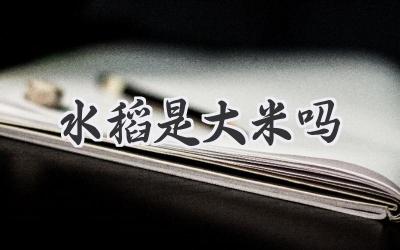 水稻是大米吗